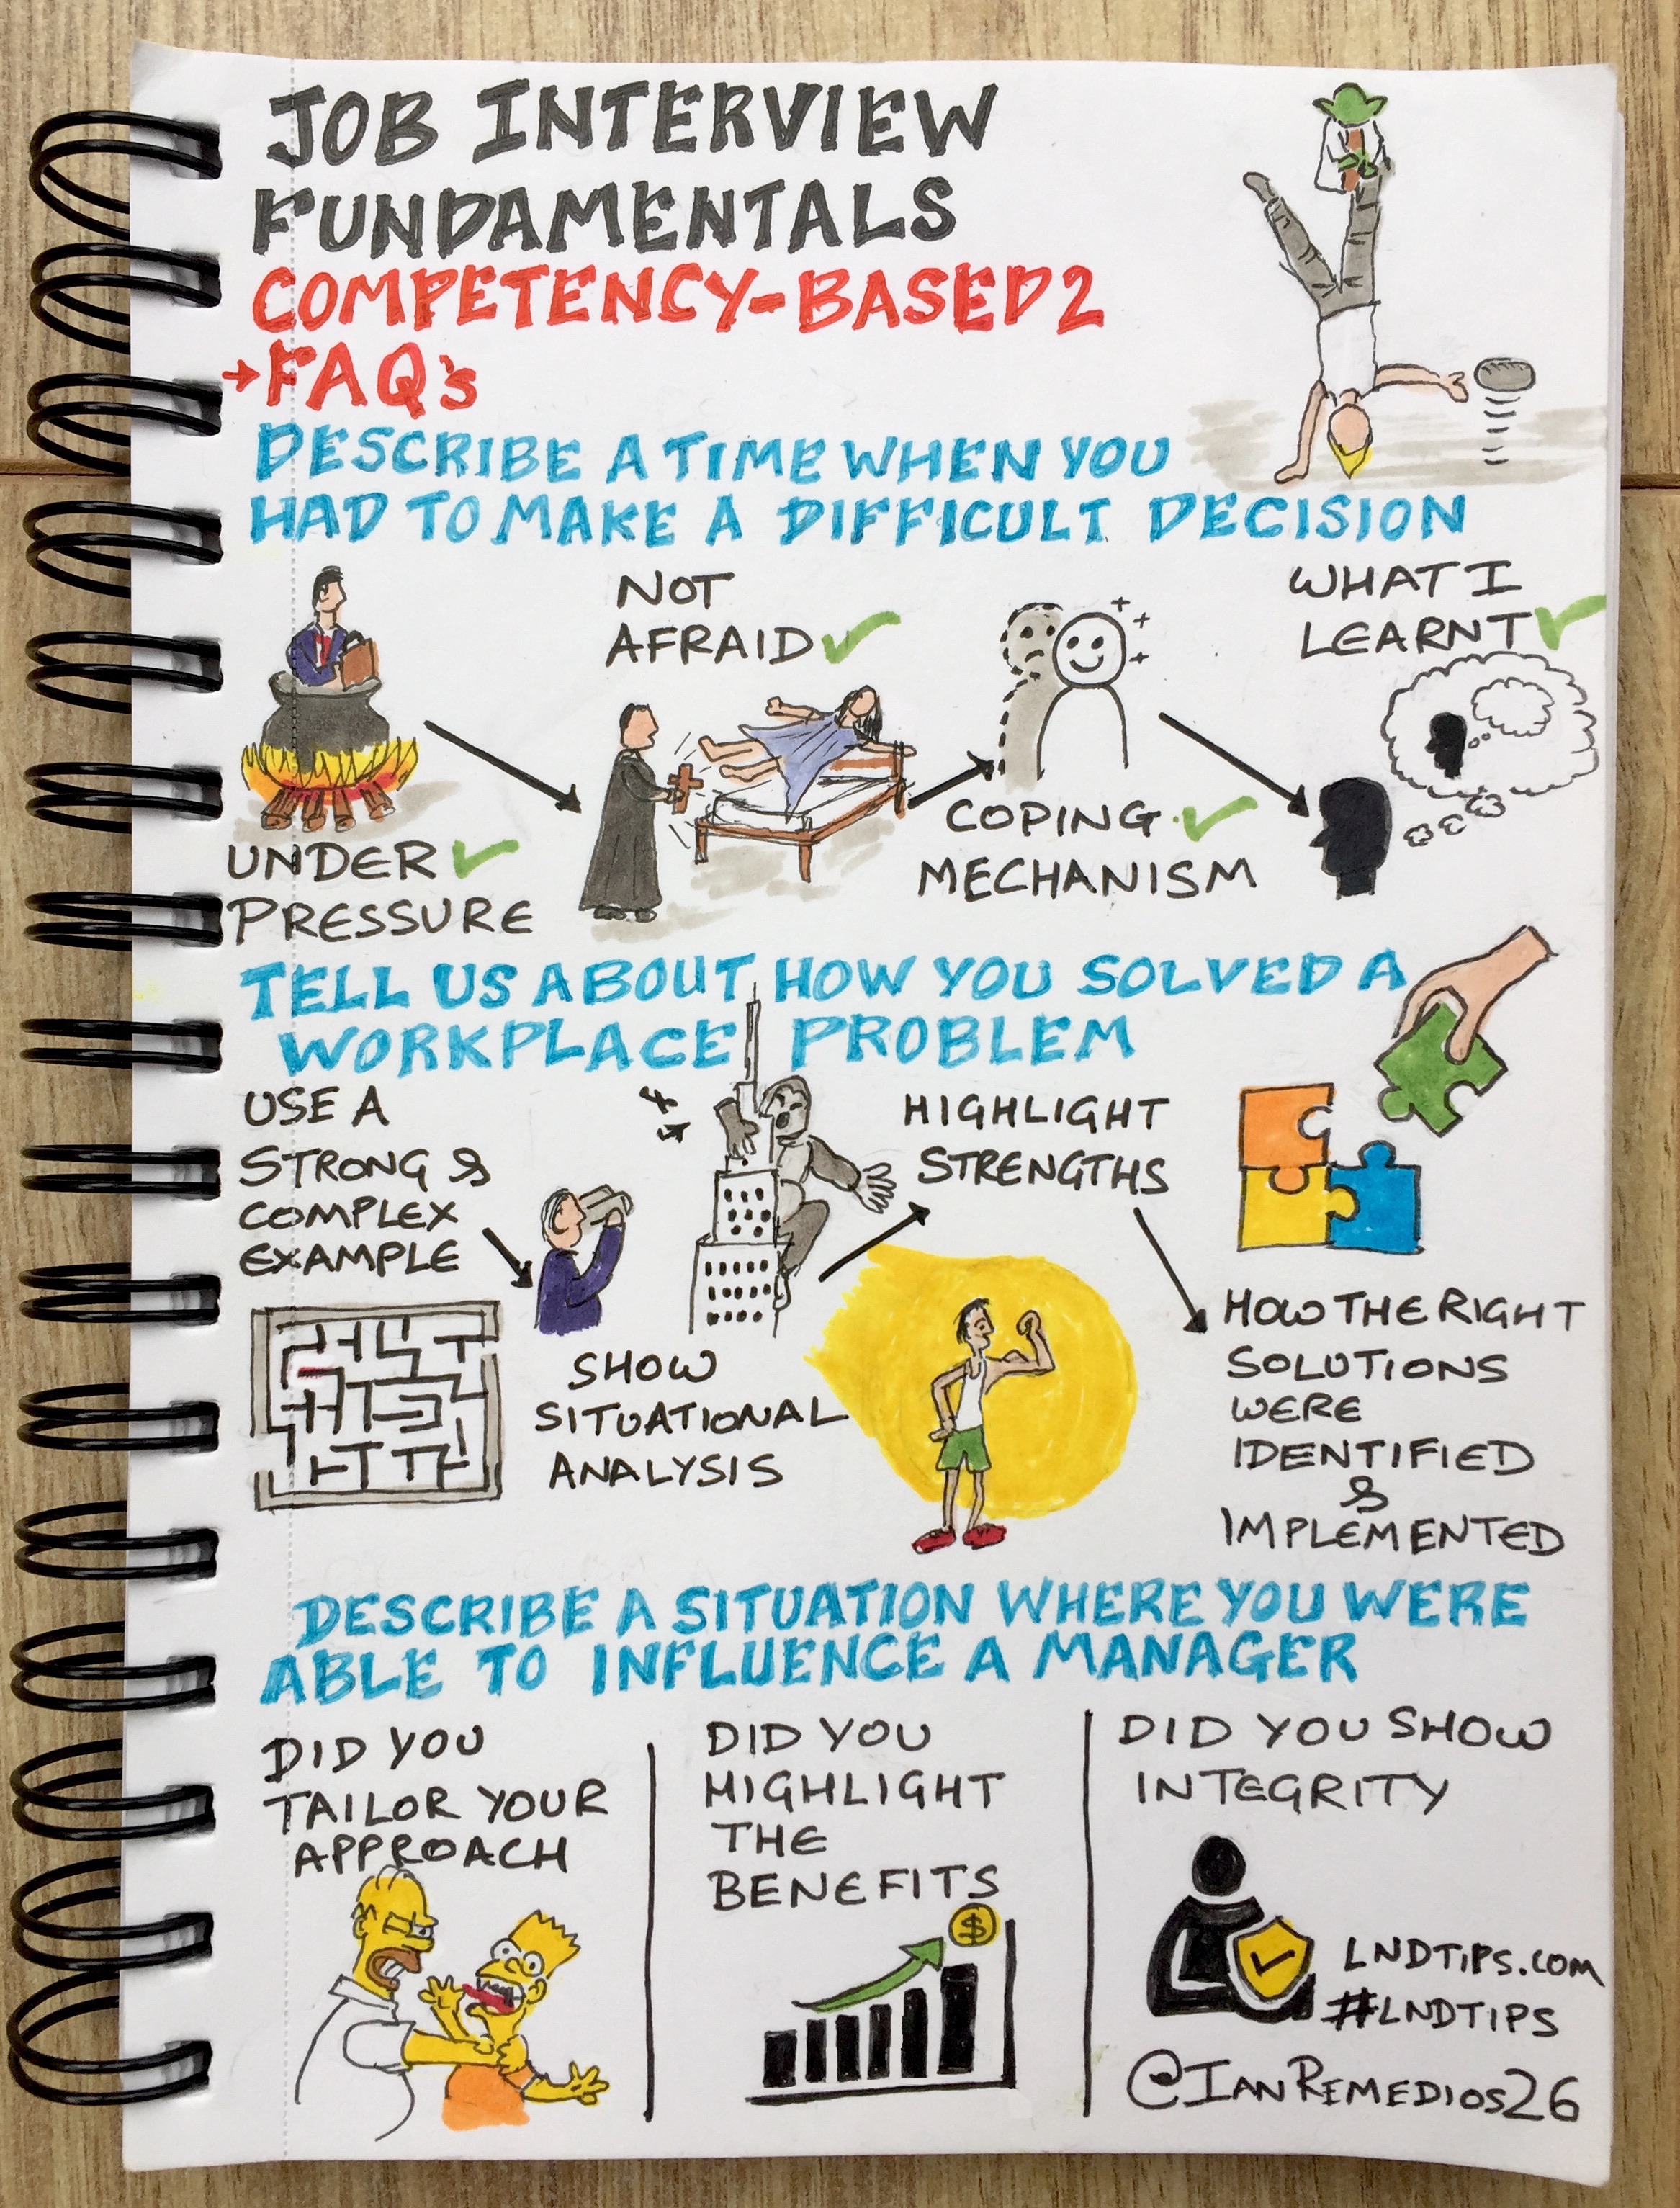 JOB INTERVIEW
FUNDAMENTALS
COMPETENCY-BASED 2
→FAQ's
DESCRIBE A TIME WHEN YOU
HAD TO MAKE A DIFFICULT DECISION
UNDER ✓
PRESSURE
NOT
AFRAID ✓
COPING ✓
MECHANISM
WHAT I
LEARNT ✓
TELL US ABOUT HOW YOU SOLVED A
WORKPLACE PROBLEM
USE A
STRONG &
COMPLEX
EXAMPLE
SHOW
SITUATIONAL
ANALYSIS
HIGHLIGHT
STRENGTHS
HOW THE RIGHT
SOLUTIONS
WERE
IDENTIFIED
&
IMPLEMENTED
DESCRIBE A SITUATION WHERE YOU WERE
ABLE TO INFLUENCE A MANAGER
DID YOU
TAILOR YOUR
APPROACH
DID YOU
HIGHLIGHT
THE
BENEFITS
$
DID YOU SHOW
INTEGRITY
LNDTIPS.COM
#LNDTIPS
@IANREMEDIOS26